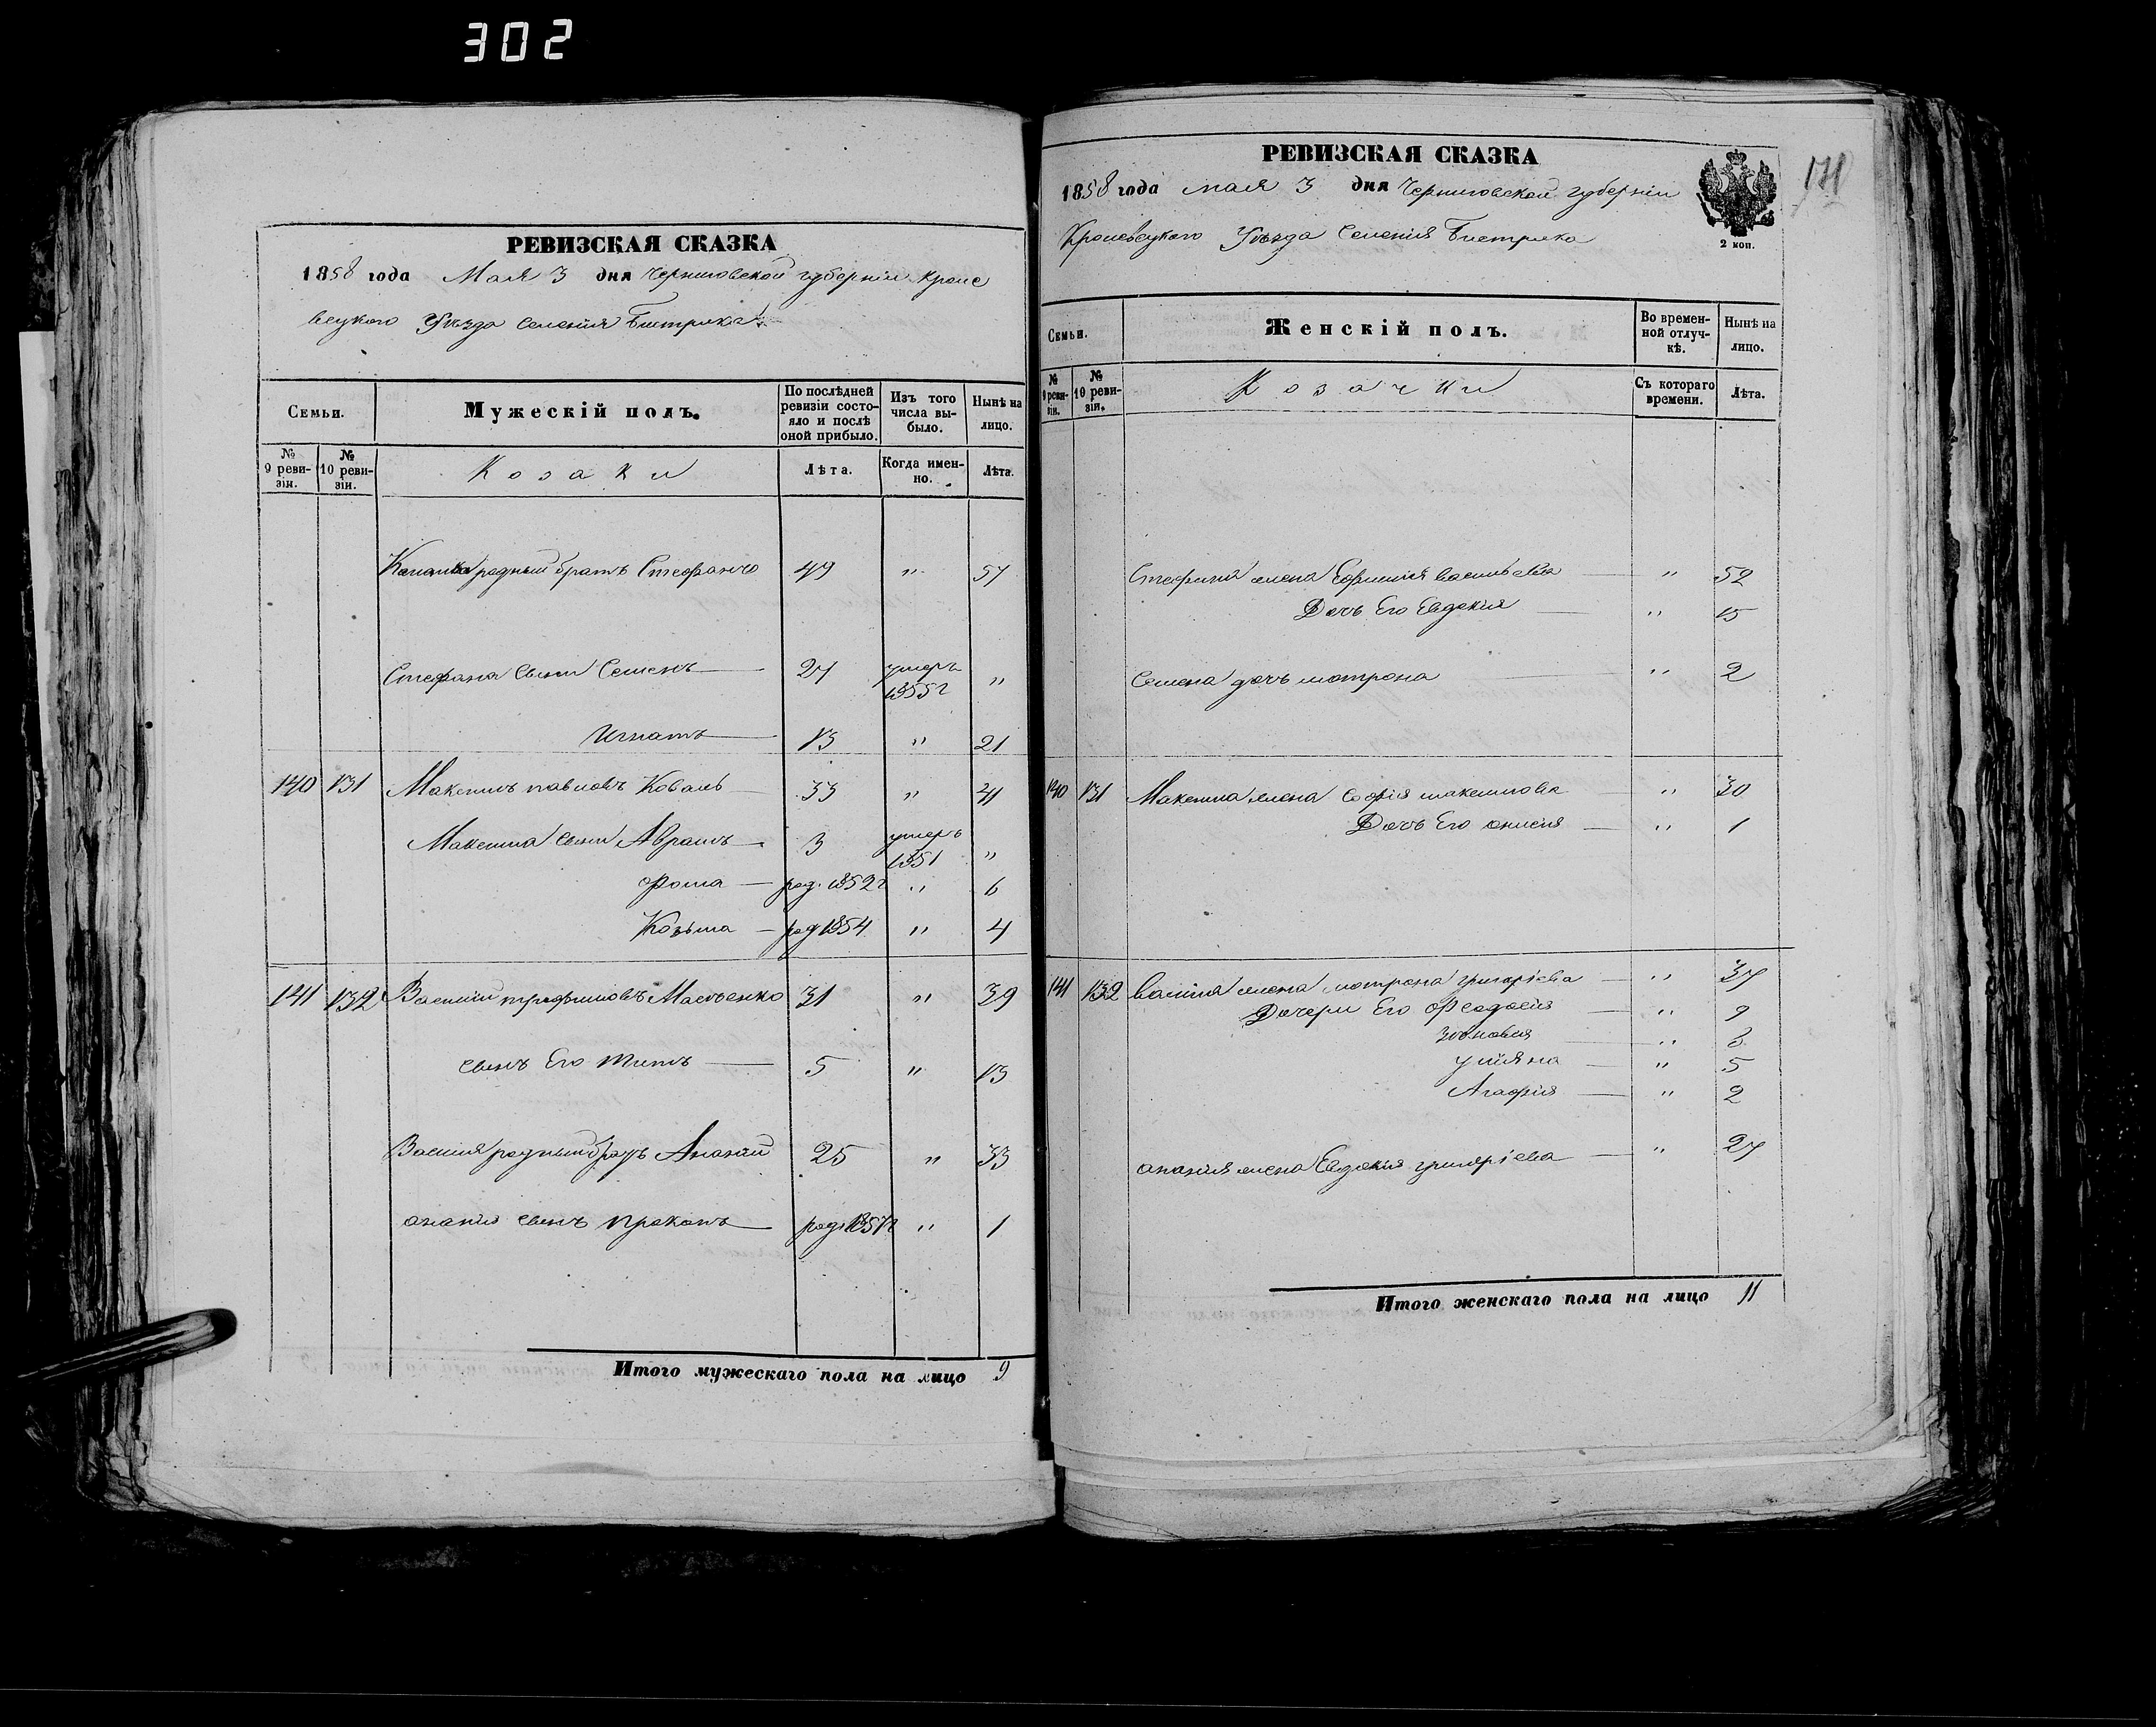 302
РЕВИЗСКАЯ СКАЗКА
1858 года Мая 3 дня Черниговской губернии Кроле
вецкого Уѣзда Селения Бистрика
Семьи.
Мужескій полъ.
По послѣдней ревизіи состояло и послѣ оной прибыло.
Изъ того числа выбыло.
Нынѣ на лицо.
№ 9 ревизіи.
№ 10 ревизіи.
Козаки
Лѣта.
Когда именно.
Лѣта.
родный братъ 49 " 57
Стефана сыни Семенъ 27 умеръ 1855г "
Игнатъ 13 " 21
140 131 Максимъ павловъ Коваль 33 " 41
Максима сыни Аврамъ 3 умеръ 1851 "
Фома род. 1852г " 6
Козьма род 1854 " 4
141 132 Василий трофимовъ 31 " 39
сынъ Его титъ 5 " 13
Василия родный братъ Ананий 25 " 33
анания сынъ прокопъ род. 1857г " 1
Итого мужескаго пола на лицо 9
РЕВИЗСКАЯ СКАЗКА
1858 года мая 3 дня Черниговской губернии
Кролевецкого Уѣзда Селения Бистрика
2 коп.
Семьи.
Женскій полъ.
Во временной отлучкѣ.
Нынѣ на лицо.
№ 9 ревизіи.
№ 10 ревизіи.
Козачки
Съ котораго времени.
Лѣта.
Стефана жена Ефимия васильева " 52
Дочь Его Евдокия " 15
Семена дочь мотрона " 2
140 131 Максима жена Софія максимова " 30
Дочь Его анисия " 1
141 132 василия жена мотрона григорієва " 37
Дочери Его Феодосия " 9
зѣновия " 8
улияна " 5
Агафия " 2
анания жена Евдокия григорієва " 27
Итого женскаго пола на лицо 11